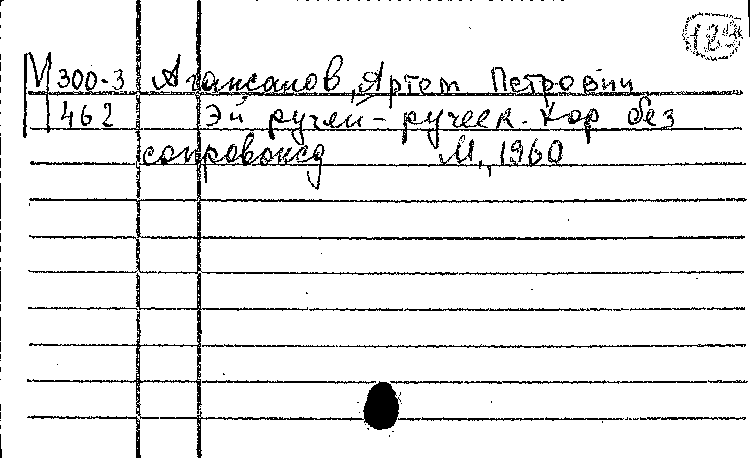 189
М 300-3 Агапсапов, Артем Петрович
462 Эй ручей-ручеек. Хор без
сопровожд М., 1960